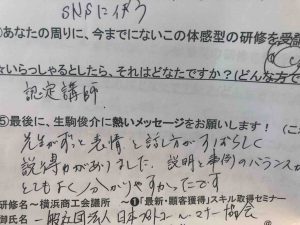 SNSに使う
のあなたの周りに、今までにないこの体感型の研修を受講
いらっしゃるとしたら、それはどなたですか？（どんな方で
認定講師
⑤最後に、生駒俊介に熱いメッセージをお願いします！（こ
先生がずっと表情と話し方がすばらしく
説得力がありました。説明と事例のバランスが
とてもよく分かりやすかったです
研修名～横浜商工会議所 ～❶「最新・顧客獲得」スキル取得セミナー
御氏名
一般社団法人日本プロトコール・マナー協会